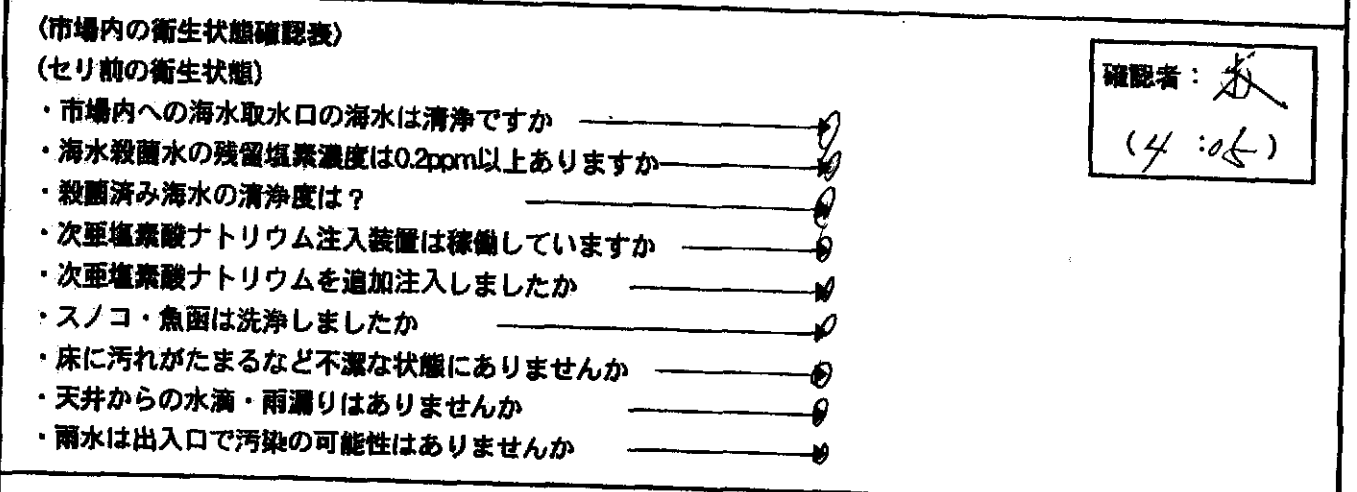 〈市場内の衛生状態確認表〉
(セリ前の衛生状態)
・市場内への海水取水口の海水は清浄ですか
・海水殺菌水の残留塩素濃度は0.2ppm以上ありますか
・殺菌済み海水の清浄度は？
・次亜塩素酸ナトリウム注入装置は稼働していますか
・次亜塩素酸ナトリウムを追加注入しましたか
・スノコ・魚函は洗浄しましたか
・床に汚れがたまるなど不潔な状態にありませんか
・天井からの水滴・雨漏りはありませんか
・雨水は出入口で汚染の可能性はありませんか
確認者：
(4:05)